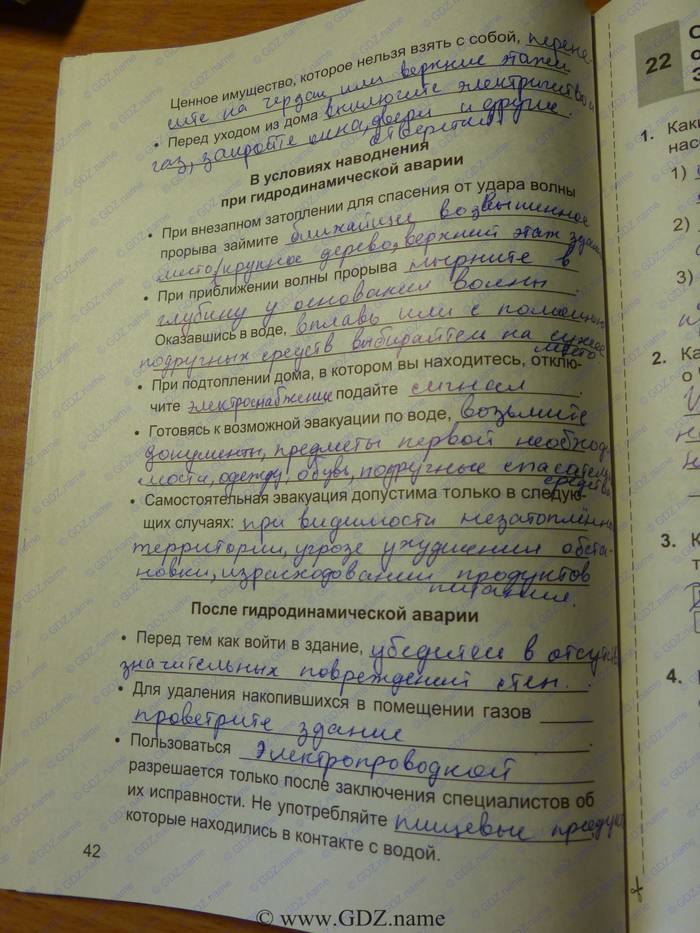 Ценное имущество, которое нельзя взять с собой, перене-
сите на чердак или верхние этажи
• Перед уходом из дома выключите электричество и
газ, закройте окна, двери и другие
отверстия.
В условиях наводнения
при гидродинамической аварии
• При внезапном затоплении для спасения от удара волны
прорыва займите ближайшее возвышенное
место/крупное дерево, верхний этаж здан
• При приближении волны прорыва нырните в
глубину у основания волны.
Оказавшись в воде, вплавь или с помощью
подручных средств выбирайтесь на сухое
место
• При подтоплении дома, в котором вы находитесь, отклю-
чите электроснабжение подайте сигнал.
• Готовясь к возможной эвакуации по воде, возьмите
документы, предметы первой необход
мости, одежду, обувь, подручные спасател
средства
• Самостоятельная эвакуация допустима только в следую-
щих случаях: при видимости незатоплённо
территории, угрозе ухудшения обста-
новки, израсходовании продуктов
питания.
После гидродинамической аварии
• Перед тем как войти в здание, убедитесь в отсутств
значительных повреждений стен.
• Для удаления накопившихся в помещении газов
проветрите здание.
• Пользоваться электропроводкой
разрешается только после заключения специалистов об
их исправности. Не употребляйте пищевые продук
которые находились в контакте с водой.
42
22
1. Каки
нас
1)
2)
3)
2. Ка
о
3. К
т
4.
© www.GDZ.name